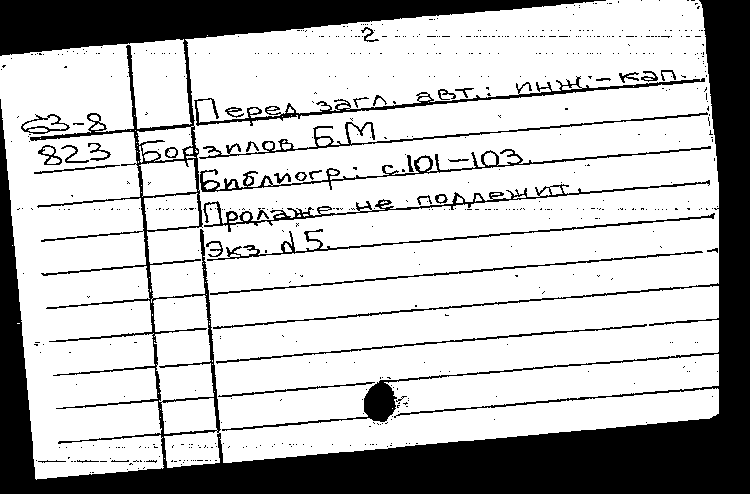 2
63-8 Перед загл. авт.: инж.-кап.
823 Борзилов Б.М.
Библиогр.: с.101-103.
Продаже не подлежит.
Экз. №5.